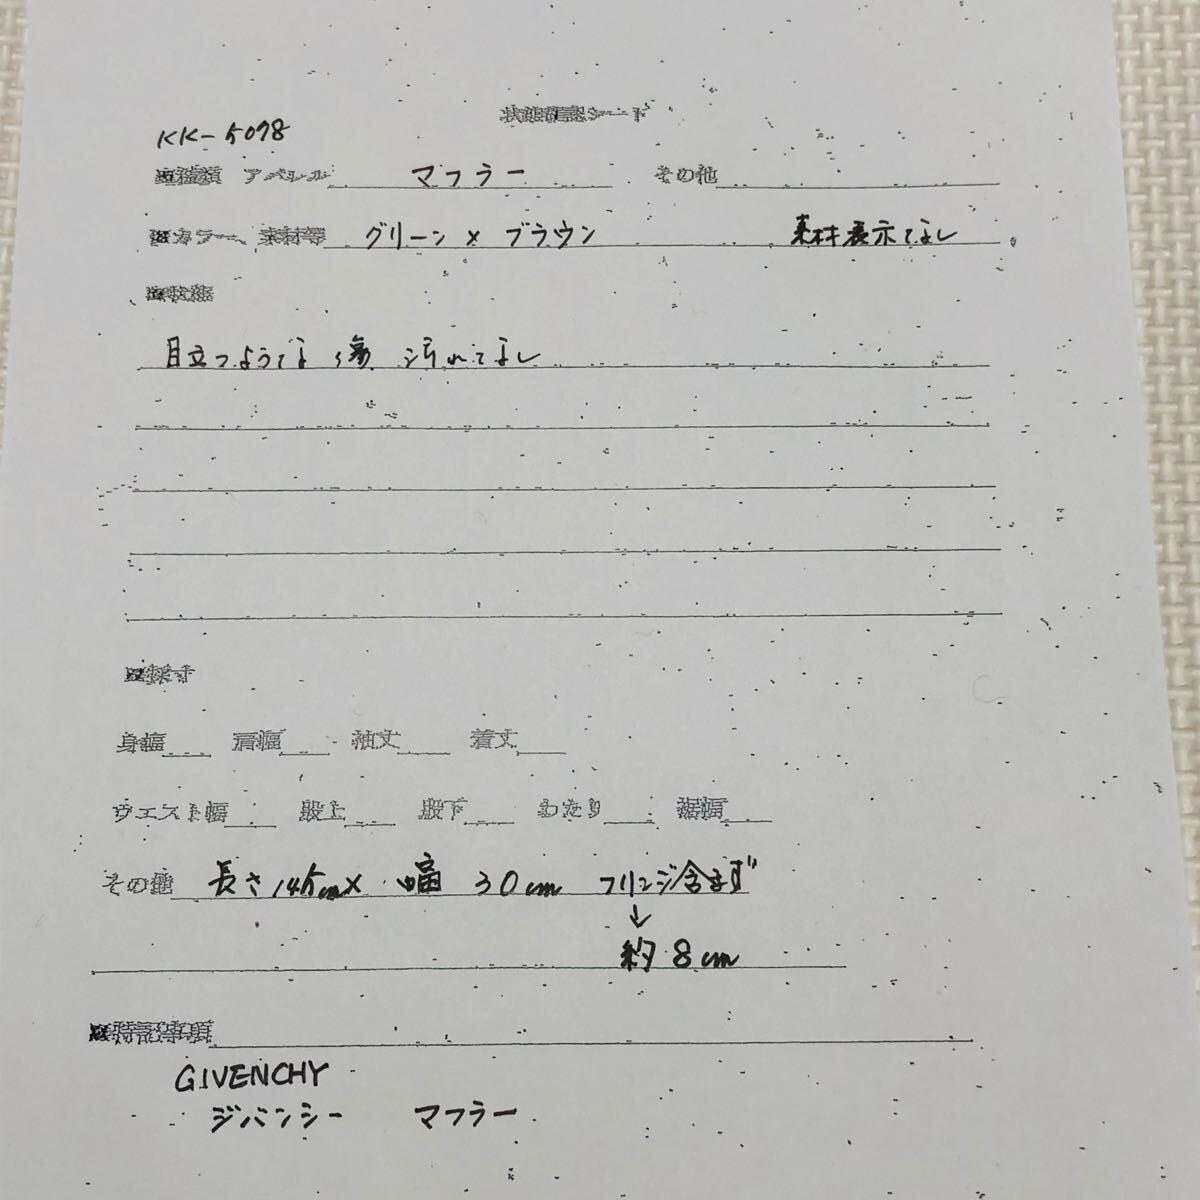 状態確認シート
KK-5078
■種類 アパレル マフラー その他
■カラー、素材等 グリーン×ブラウン 素材表示なし
■状態
目立つような傷 汚れなし
■採寸
身幅 肩幅 袖丈 着丈
ウエスト幅 股上 股下 わたり 裾幅
その他 長さ145cm× 幅 30cm フリンジ含まず
↓
約8cm
■特記事項
GIVENCHY
ジバンシー マフラー